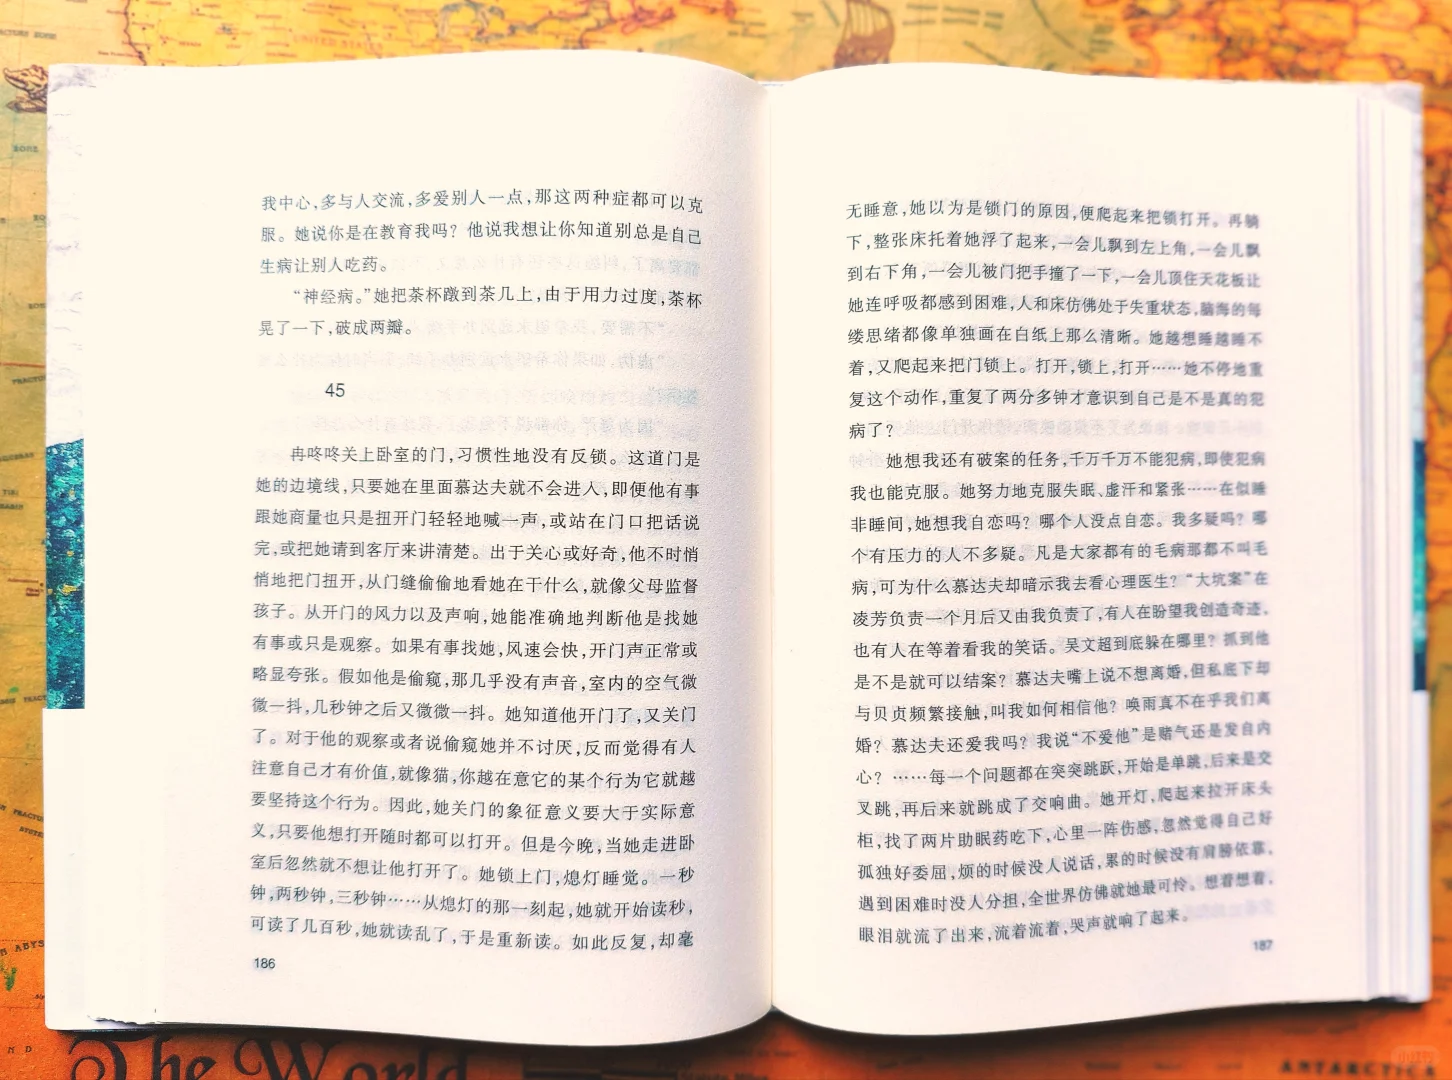 我中心,多与人交流,多爱别人一点,那这两种症都可以克
服。她说你是在教育我吗？他说我想让你知道别总是自己
生病让别人吃药。
“神经病。”她把茶杯蹾到茶几上,由于用力过度,茶杯
晃了一下,破成两瓣。
45
冉咚咚关上卧室的门,习惯性地没有反锁。这道门是
她的边境线,只要她在里面慕达夫就不会进入,即便他有事
跟她商量也只是扭开门轻轻地喊一声,或站在门口把话说
完,或把她请到客厅来讲清楚。出于关心或好奇,他不时悄
悄地把门扭开,从门缝偷偷地看她在干什么,就像父母监督
孩子。从开门的风力以及声响,她能准确地判断他是找她
有事或只是观察。如果有事找她,风速会快,开门声正常或
略显夸张。假如他是偷窥,那几乎没有声音,室内的空气微
微一抖,几秒钟之后又微微一抖。她知道他开门了,又关门
了。对于他的观察或者说偷窥她并不讨厌,反而觉得有人
注意自己才有价值,就像猫,你越在意它的某个行为它就越
要坚持这个行为。因此,她关门的象征意义要大于实际意
义,只要他想打开随时都可以打开。但是今晚,当她走进卧
室后忽然就不想让他打开了。她锁上门,熄灯睡觉。一秒
钟,两秒钟,三秒钟……从熄灯的那一刻起,她就开始读秒,
可读了几百秒,她就读乱了,于是重新读。如此反复,却毫
186
无睡意,她以为是锁门的原因,便爬起来把锁打开。再躺
下,整张床托着她浮了起来,一会儿飘到左上角,一会儿飘
到右下角,一会儿被门把手撞了一下,一会儿顶住天花板让
她连呼吸都感到困难,人和床仿佛处于失重状态,脑海的每
缕思绪都像单独画在白纸上那么清晰。她越想睡越睡不
着,又爬起来把门锁上。打开,锁上,打开……她不停地重
复这个动作,重复了两分多钟才意识到自己是不是真的犯
病了？
她想我还有破案的任务,千万千万不能犯病,即使犯病
我也能克服。她努力地克服失眠、虚汗和紧张……在似睡
非睡间,她想我自恋吗？哪个人没点自恋。我多疑吗？哪
个有压力的人不多疑。凡是大家都有的毛病那都不叫毛
病,可为什么慕达夫却暗示我去看心理医生？“大坑案”在
凌芳负责一个月后又由我负责了,有人在盼望我创造奇迹,
也有人在等着看我的笑话。吴文超到底躲在哪里？抓到他
是不是就可以结案？慕达夫嘴上说不想离婚,但私底下却
与贝贞频繁接触,叫我如何相信他？唤雨真不在乎我们离
婚？慕达夫还爱我吗？我说“不爱他”是赌气还是发自内
心？……每一个问题都在突突跳跃,开始是单跳,后来是交
叉跳,再后来就跳成了交响曲。她开灯,爬起来拉开床头
柜,找了两片助眠药吃下,心里一阵伤感,忽然觉得自己好
孤独好委屈,烦的时候没人说话,累的时候没有肩膀依靠,
遇到困难时没人分担,全世界仿佛就她最可怜。想着想着,
眼泪就流了出来,流着流着,哭声就响了起来。
187
The World
ANTARCTICA